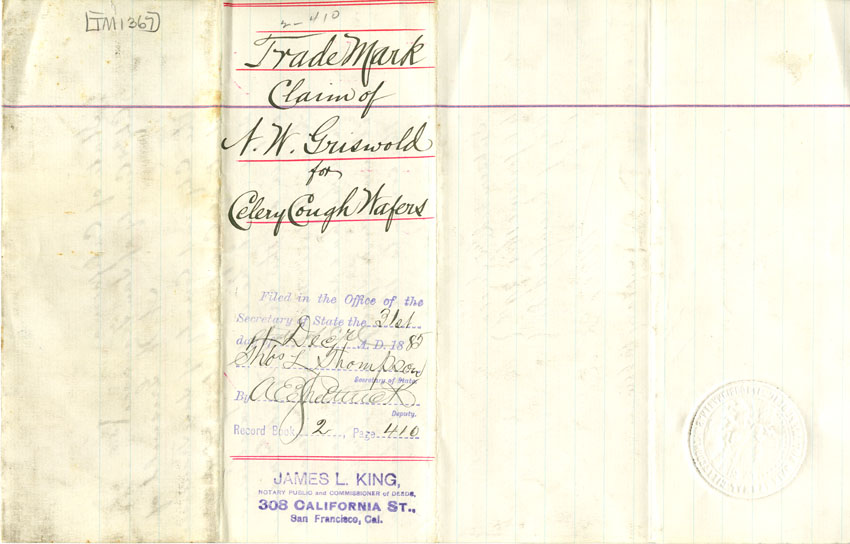 TM1367
2-410
Trade Mark
Claim of
N. W. Griswold
for
Celery Cough Wafers
Filed in the Office of the
Secretary of State the 31st
day of Decr A. D. 188
Thos L Thompson
Secretary of State
By
Deputy.
Record Book 2, Page 410
JAMES L. KING,
NOTARY PUBLIC and COMMISSIONER of DEEDS,
308 CALIFORNIA ST.,
San Francisco, Cal.